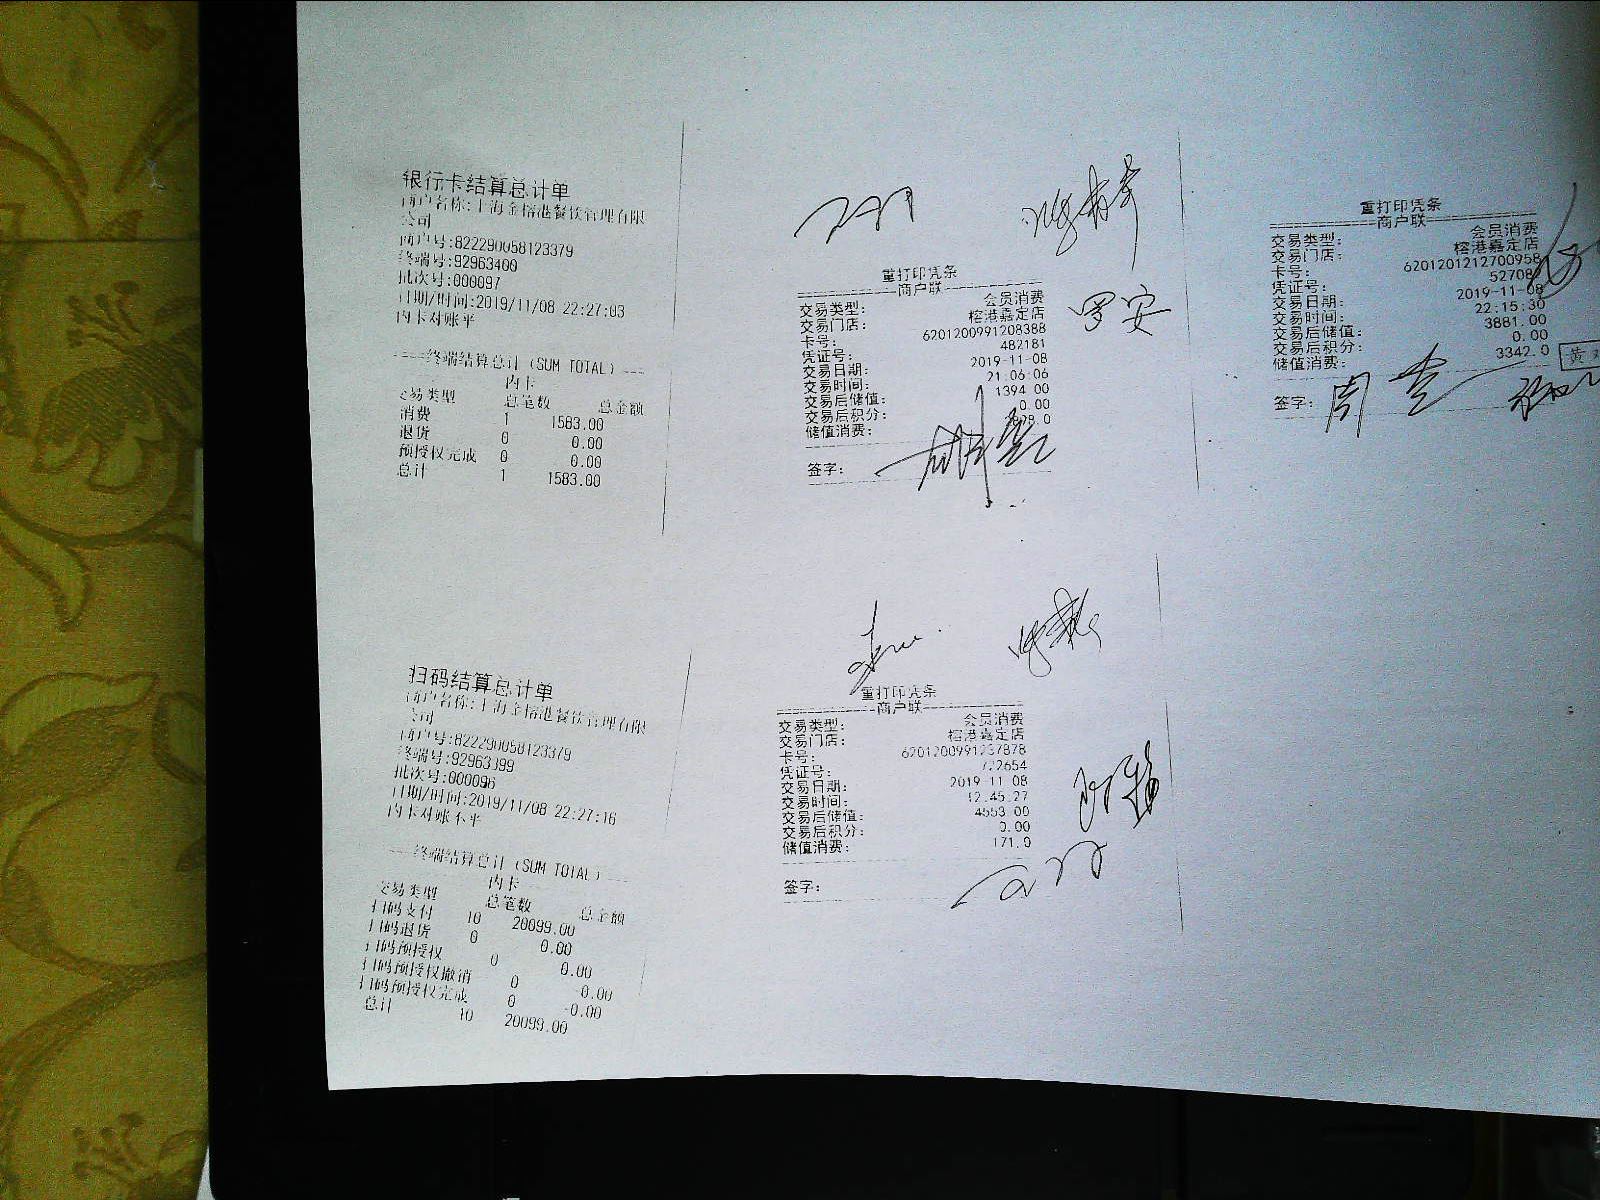 银行卡结算总计单
商户名称:上海金榕港餐饮管理有限
公司
商户号:822290058123379
终端号:92963400
批次号:000097
日期/时间:2019/11/08 22:27:03
内卡对账平
终端结算总计(SUM TOTAL)
内卡
交易类型 总笔数 总金额
消费 1 1583.00
退货 0 0.00
预授权完成 0 0.00
总计 1 1583.00
重打印凭条
商户联
交易类型: 会员消费
交易门店: 榕港嘉定店
卡号: 6201200991208388
凭证号: 482181
交易日期: 2019-11-08
交易时间: 21:06:06
交易后储值: 1394.00
交易后积分: 0.00
储值消费:
签字:
罗安
重打印凭条
商户联
交易类型: 会员消费
交易门店: 榕港嘉定店
卡号: 6201201212700958
凭证号: 52708
交易日期: 2019-11-08
交易时间: 22:15:30
交易后储值: 3881.00
交易后积分: 0.00
储值消费: 3342.0
签字:
黄
扫码结算总计单
商户名称:上海金榕港餐饮管理有限
公司
商户号:822290058123379
终端号:92963399
批次号:000096
日期/时间:2019/11/08 22:27:16
内卡对账不平
终端结算总计(SUM TOTAL)
内卡
交易类型 总笔数 总金额
扫码支付 10 20099.00
扫码退货 0 0.00
扫码预授权 0 0.00
扫码预授权撤销 0 -0.00
扫码预授权完成 0 -0.00
总计 10 20099.00
重打印凭条
商户联
交易类型: 会员消费
交易门店: 榕港嘉定店
卡号: 6201200991237878
凭证号: 722654
交易日期: 2019-11-08
交易时间: 12:45:27
交易后储值: 4553.00
交易后积分: 0.00
储值消费: 171.0
签字: